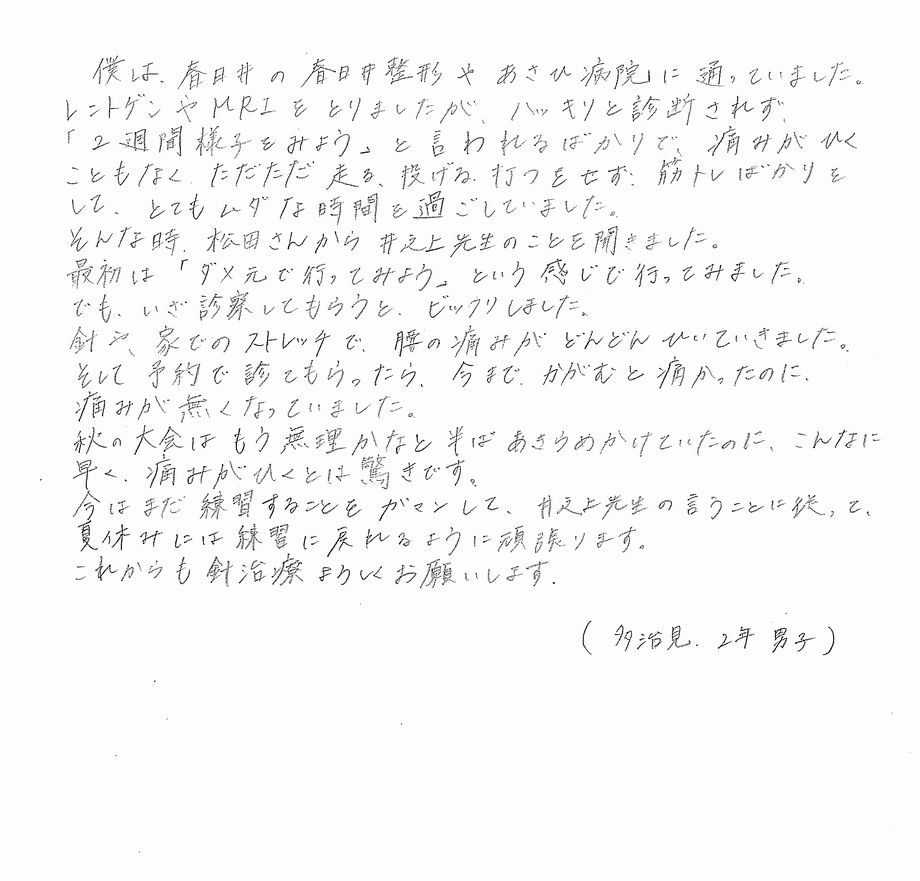 僕は、春日井の春日井整形やあさひ病院に通っていました。
レントゲンやMRIをとりましたが、ハッキリと診断されず、
「2週間様子をみよう」と言われるばかりで、痛みがひく
こともなく、ただただ走る、投げる、打つをせず、筋トレばかりを
して、とてもムダな時間を過ごしていました。
そんな時、松田さんから井之上先生のことを聞きました。
最初は「ダメ元で行ってみよう」という感じで行ってみました。
でも、いざ診察してもらうと、ビックリしました。
針や、家でのストレッチで、腰の痛みがどんどんひいていきました。
そして予約で診てもらったら、今まで、かがむと痛かったのに、
痛みが無くなっていました。
秋の大会はもう無理かなと半ばあきらめかけていたのに、こんなに
早く、痛みがひくとは驚きです。
今はまだ練習することをガマンして、井之上先生の言うことに従って、
夏休みには練習に戻れるように頑張ります。
これからも針治療よろしくお願いします。
(多治見、2年男子)